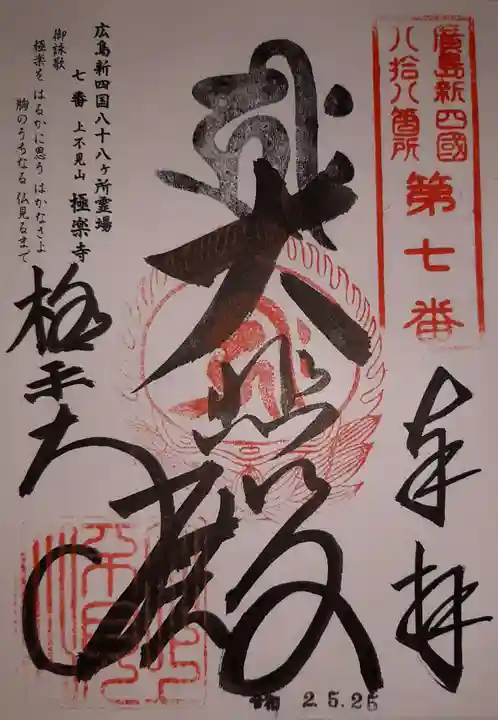 廣島新四國
八拾八箇所
第七番
奉拝
大悲殿
広島新四国八十八ヶ所霊場
七番 上不見山 極楽寺
御詠歌
極楽を はるかに思う はかなさよ
胸のうちなる 仏見るまで
極楽寺
2.5.25